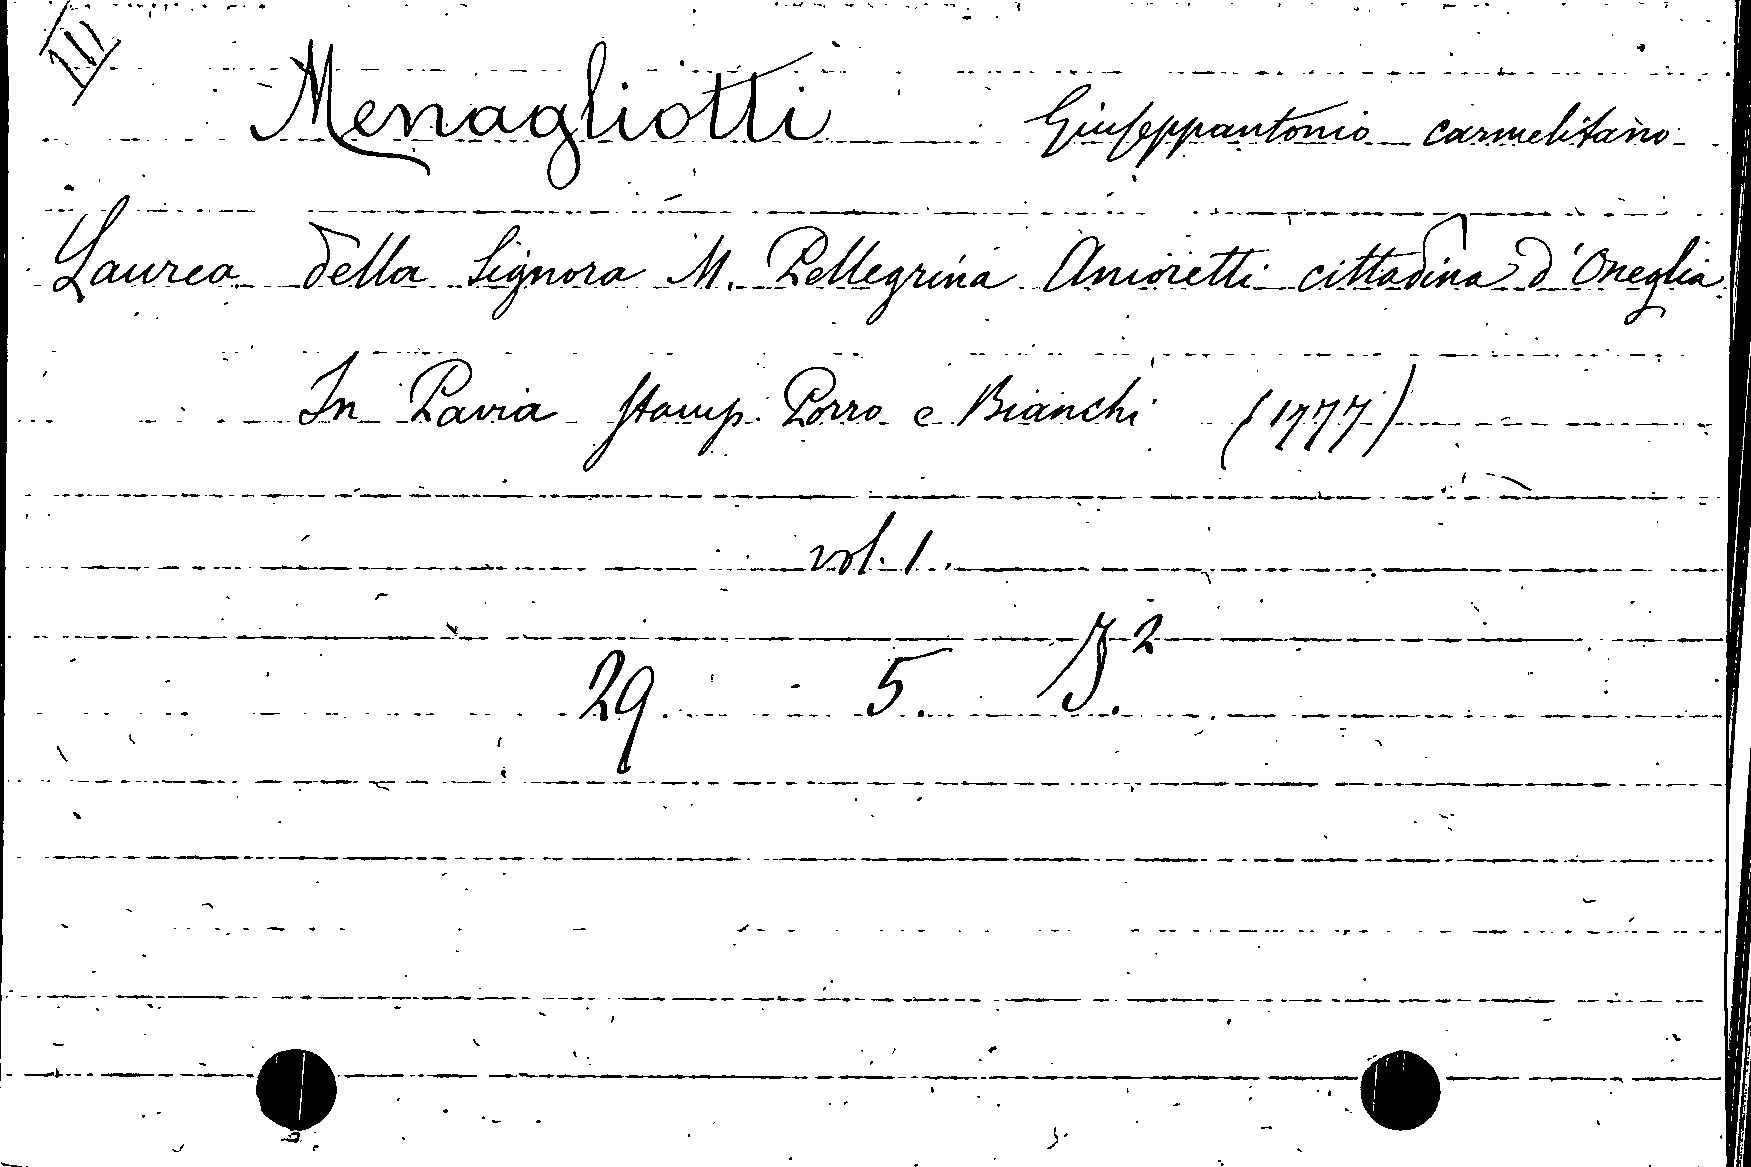 III
Menagliotti Giuseppantonio carmelitano
Laurea della Signora M. Pellegrina Amoretti cittadina d'Oneglia
In Pavia Stamp. Porro e Bianchi (1777)
vol. 1.
29. 5. J.²